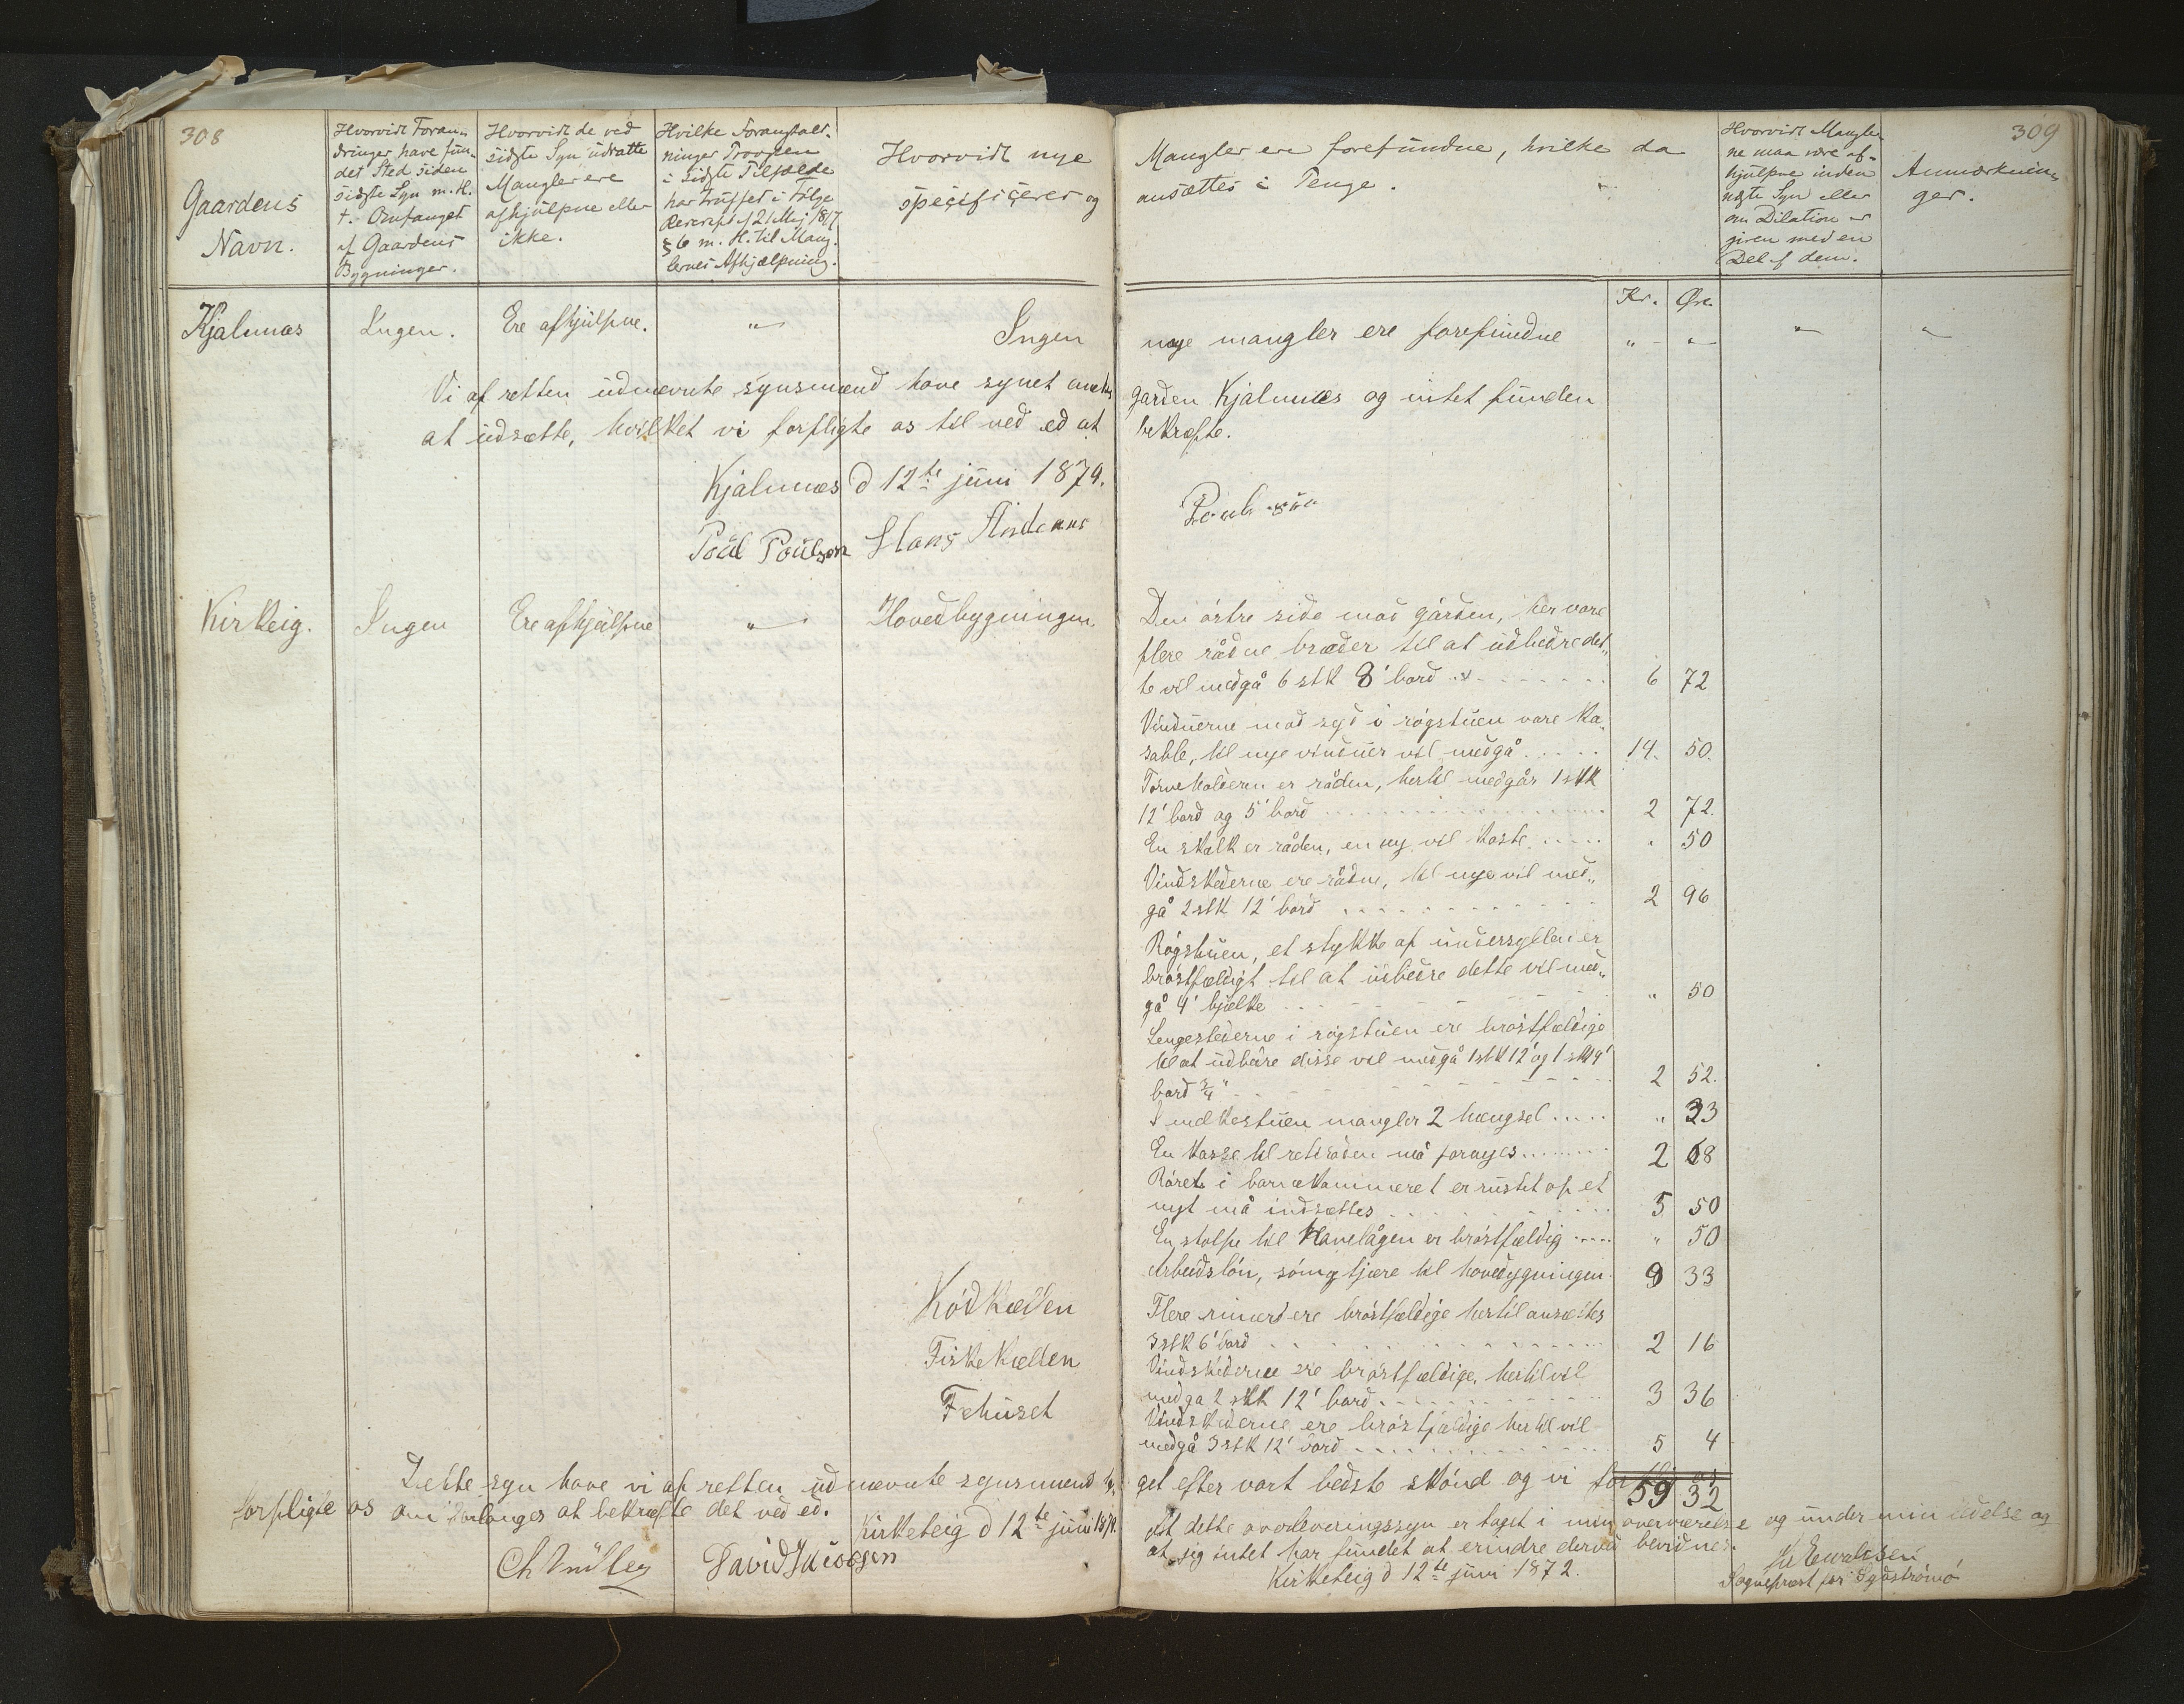 308
Gaardens
Navn.
Hvorvidt Foran-
dringer have fun-
det Sted siden
sidste Syn m. H.
t. Omfanget
af Gaardens
Bygninger.
Hvorvidt de ved
sidste Syn udsatte
Mangler ere
afhjulpne eller
ikke.
Hvilke Foranstalt-
ninger Provsten
i sidste Tilfælde
har truffet i Følge
Rescript af 21 Maj 1817
§ 6 m. H. til Mang-
lernes Afhjælpning.
Hvorvidt nye
specificeres og
Mangler ere forefundne, hvilke da
ansættes i Penge.
Hvorvidt Mangler-
ne maa være af-
hjulpne inden
næste Syn eller
om Dilation er
given med en
Del af dem.
309
Anmærknin-
ger.
Kr. Øre.
Kjalnnæs Ingen. Ere afhjulpne. " Ingen nye mangler ere forefundne " " " "
Vi af retten udnævnte synsmænd have synet garden Kjalnnæs og intet funden
at udsætte, hvilket vi forpligte os til ved ed at bekræfte.
Kjalnnæs d 12te juni 1879.
Poul Poulson Hans
Kirkeig. Ingen Ere afhjulpne " Hovedbygningen.
Den östre side mod gården, her vare
flere rådne bræder til at udbedre det-
te vil medgå 6 stk 8' bord 6 72
Vinduerne mod syd i rögstuen vare ka-
sable, til nye vinduer vil medgå 14. 50.
Törveholderen er råden, hertil medgår 1 stk
12' bord og 5' bord 2 72.
En skalk er råden, en ny vil koste " 50
Vindskederne ere rådne, til nye vil med-
gå 2 stk 12' bord 2 96
Rögstuen, et stykke af undersyllen er
bröstfældigt til at udbedre dette vil med-
gå 4' bjelke " 50
Sengestederne i rögstuen ere bröstfældige
til at udbedre disse vil medgå 1 stk 12' og 1 stk 9'
bord 3/4" 2 52.
I melkestuen mangler 2 hængsel " 33
En kasse til retiraden må fornyes 2 68
Röret i barnekammeret er rustet op et
nyt må indsættes 5 50
En stolpe til Havelågen er bröstfældig " 50
Arbeidslön, söm og tjære til hovedbygningen 9 33
Ködkælden
Flere rimer ere bröstfældige hertil ansættes
3 stk 6' bord 2 16
Fiskekælden
Vindskederne ere bröstfældige, hertil vil
medgå 2 stk 12' bord 3 36
Fehuset
Vindskederne ere bröstfældige hertil vil
medgå 3 stk 12' bord 5 4
59 32
Dette syn have vi af retten udnævnte synsmænd ta-get efter vort bedste skönd og vi
forpligte os om forlanges at bekræfte det ved ed.
Kirketeig d 12te juni 1879.
Ch Müller David Jacobsen
At dette overleveringssyn er taget i min overværelse og under min ledelse og
at jeg intet har fundet at erindre derved bevidnes.
Kirketeig d 12te juni 1872.
Sognepræst for Sydströmö